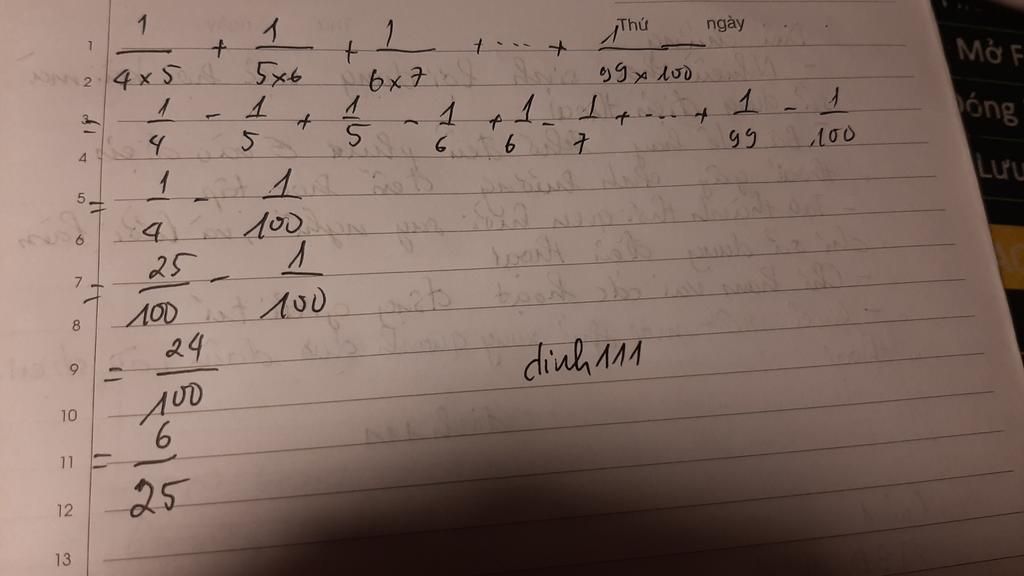 Thứ ngày
1 1/(4×5) + 1/(5×6) + 1/(6×7) + ... + 1/(99×100)
2
3 = 1/4 - 1/5 + 1/5 - 1/6 + 1/6 - 1/7 + ... + 1/99 - 1/100
4
5 = 1/4 - 1/100
6
7 = 25/100 - 1/100
8
9 = 24/100
dinh111
10
11 = 6/25
12
13
Mở F
Lưu